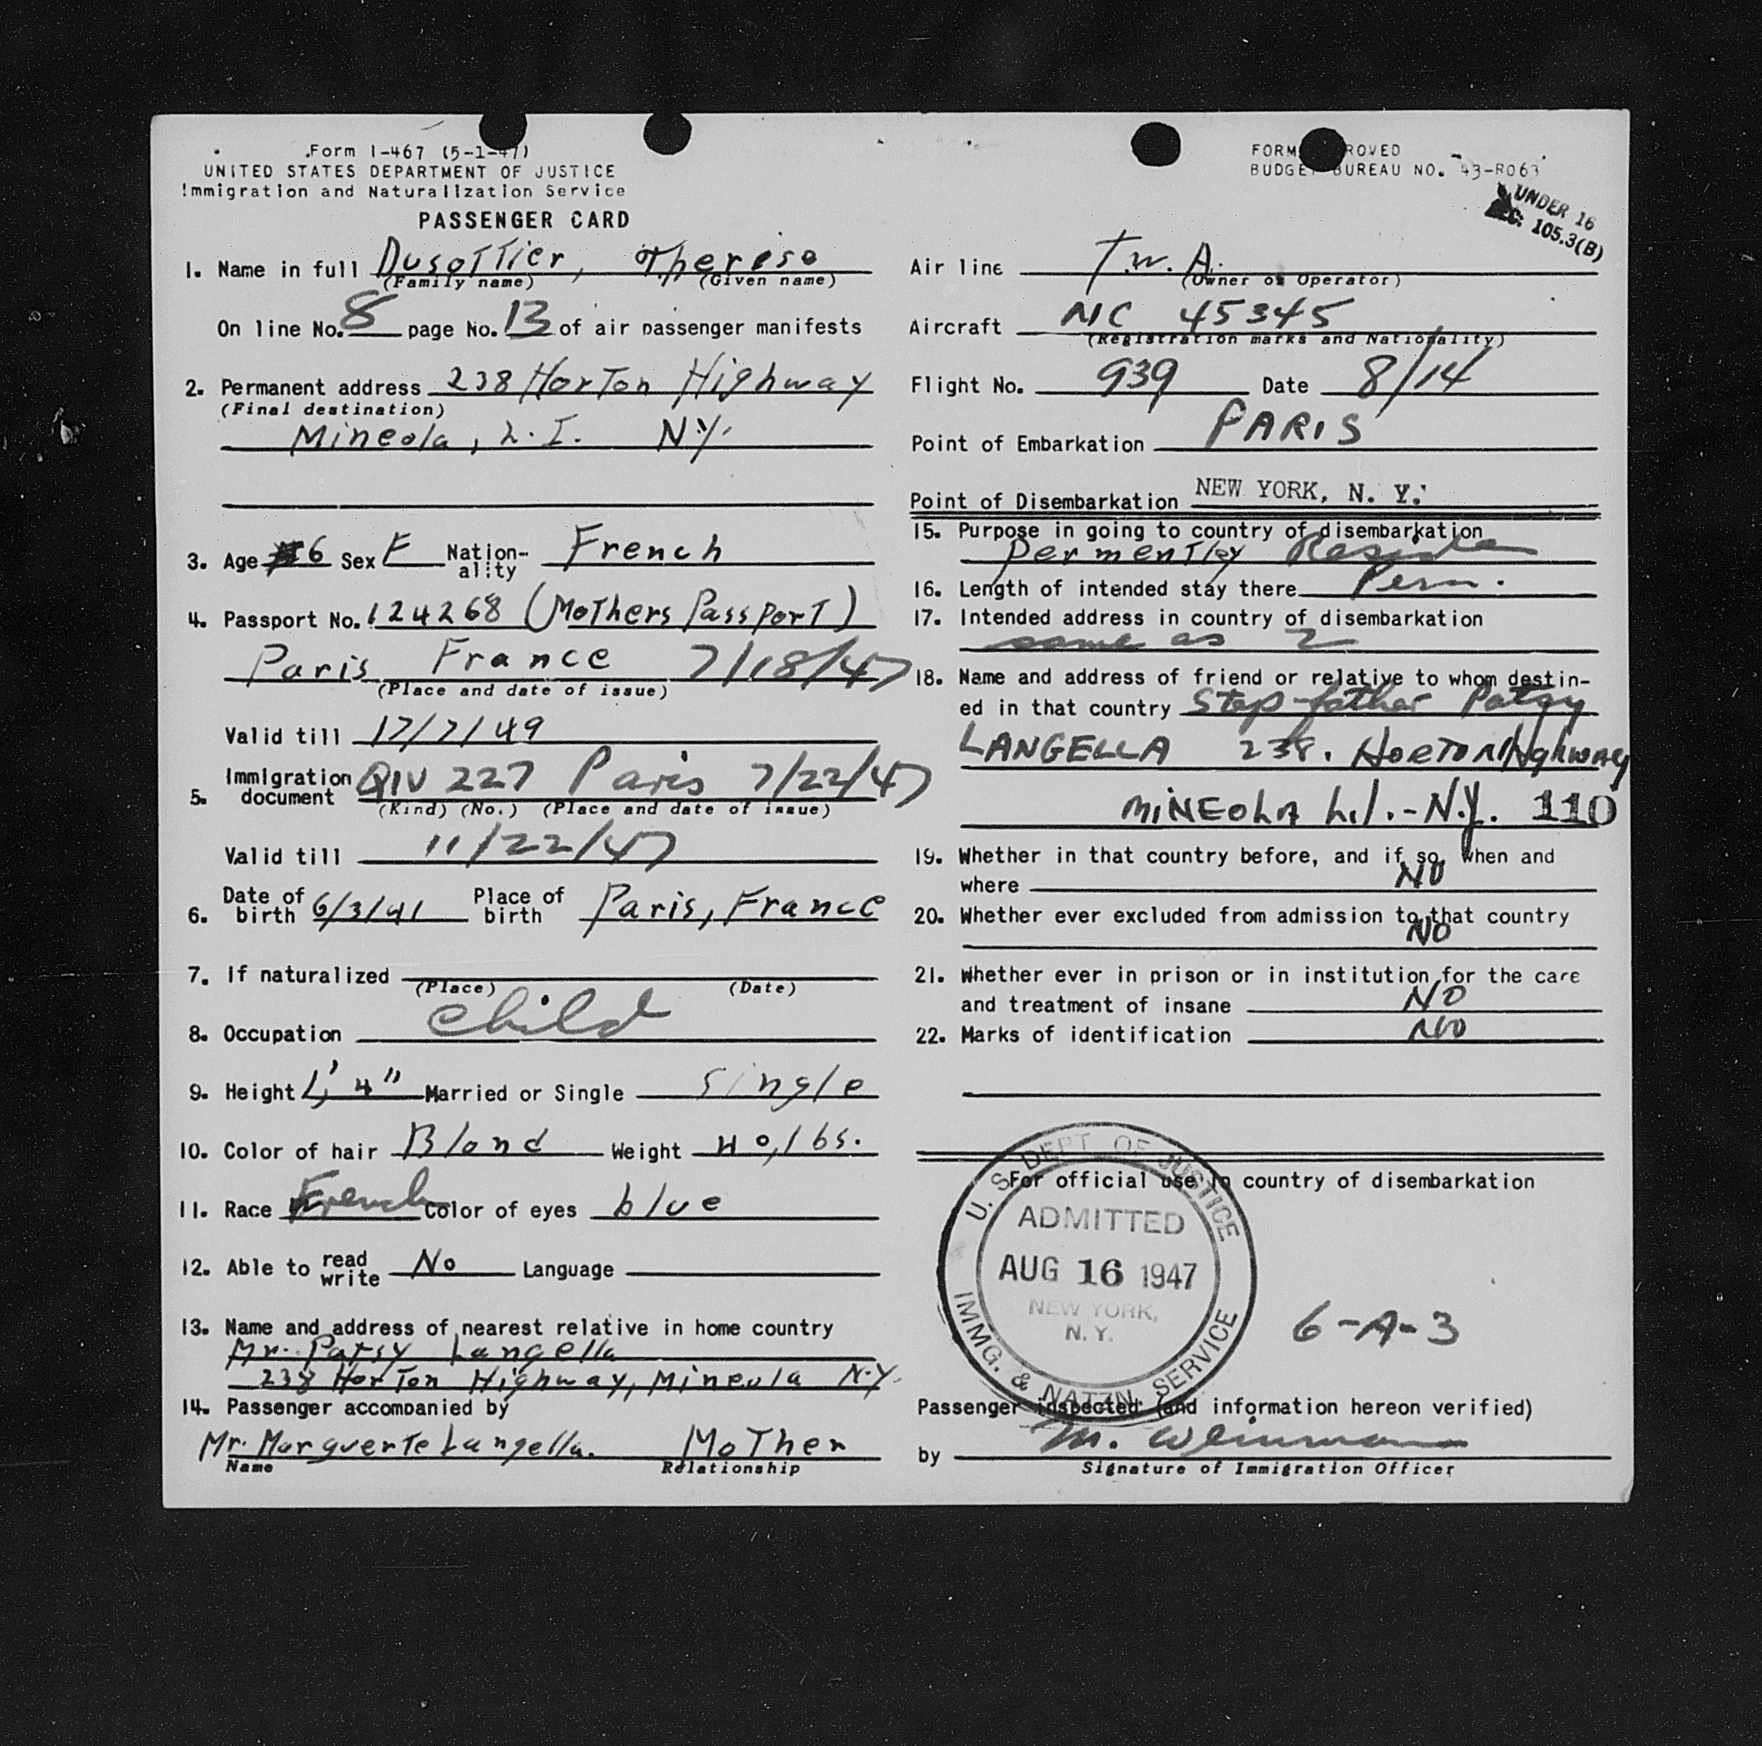 Form I-467 (5-1-47)
UNITED STATES DEPARTMENT OF JUSTICE
Immigration and Naturalization Service
PASSENGER CARD
1. Name in full Dusottier, Therese
(Family name) (Given name)
On line No. 8 page No. 13 of air passenger manifests
2. Permanent address 238 Horton Highway
(Final destination)
Mineola, L.I. N.Y.
3. Age 6 Sex F Nation-ality French
4. Passport No. 124268 (Mothers Passport)
Paris France 7/18/47
(Place and date of issue)
Valid till 17/7/49
5. Immigration document QIV 227 Paris 7/22/47
(Kind) (No.) (Place and date of issue)
Valid till 11/22/47
6. Date of birth 6/3/41 Place of birth Paris, France
7. If naturalized
(Place) (Date)
8. Occupation child
9. Height 4" Married or Single Single
10. Color of hair Blond Weight 40, lbs.
11. Race French Color of eyes blue
12. Able to read write No Language
13. Name and address of nearest relative in home country
Mr. Patsy Langella
238 Horton Highway, Mineola N.Y.
14. Passenger accompanied by
Mr. Marguerte Langella. MoTher
Name Relationship
FORM APPROVED
BUDGET BUREAU NO. 43-R063
UNDER 16
SEC. 105.3(B)
Air line T.W.A.
(Owner or Operator)
Aircraft NC 45345
(Registration marks and Nationality)
Flight No. 939 Date 8/14
Point of Embarkation PARIS
Point of Disembarkation NEW YORK, N. Y.
15. Purpose in going to country of disembarkation
Permentley Reside
16. Length of intended stay there Perm.
17. Intended address in country of disembarkation
same as 2
18. Name and address of friend or relative to whom destin-
ed in that country Step-father Patsy
LANGELLA 238. HORTON Highway
MINEOLA L.I.-N.Y. 110
19. Whether in that country before, and if so, when and
where NO
20. Whether ever excluded from admission to that country
NO
21. Whether ever in prison or in institution for the care
and treatment of insane NO
22. Marks of identification NO
For official use in country of disembarkation
U. S. DEPT. OF JUSTICE
ADMITTED
AUG 16 1947
NEW YORK,
N. Y.
IMMG. & NATZN. SERVICE
6-A-3
Passenger inspected (and information hereon verified)
by M. Weinman
Signature of Immigration Officer